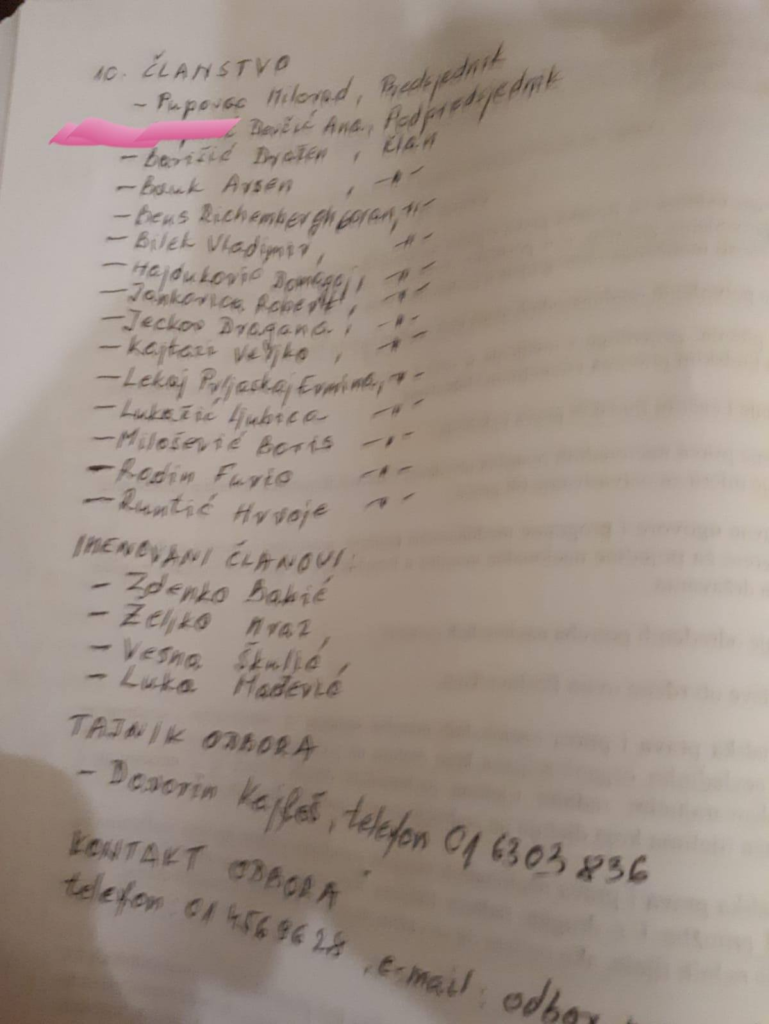 10. ČLANSTVO
- Pupovac Milorad, Predsjednik
Ana, Podpredsjednik
- Boričić Dražen, član
- Bauk Arsen, -"-
- Beus Richembergh Goran, -"-
- Bilek Vladimir, -"-
- Hajduković Domagoj, -"-
- Jankovics Robert, -"-
- Jeckov Dragana, -"-
- Kajtazi Veljko, -"-
- Lekaj Prljaskaj Ermina, -"-
- Lukašić Ljubica -"-
- Milošević Boris -"-
- Radin Furio -"-
- Runtić Hrvoje -"-
IMENOVANI ČLANOVI:
- Zdenko Babić
- Željko Mraz,
- Vesna Škulić,
- Luka Mađerić
TAJNIK ODBORA
- Davorin Kajfeš, telefon 01 6303 836
KONTAKT ODBORA
telefon: 01 4569628, e-mail: odbor